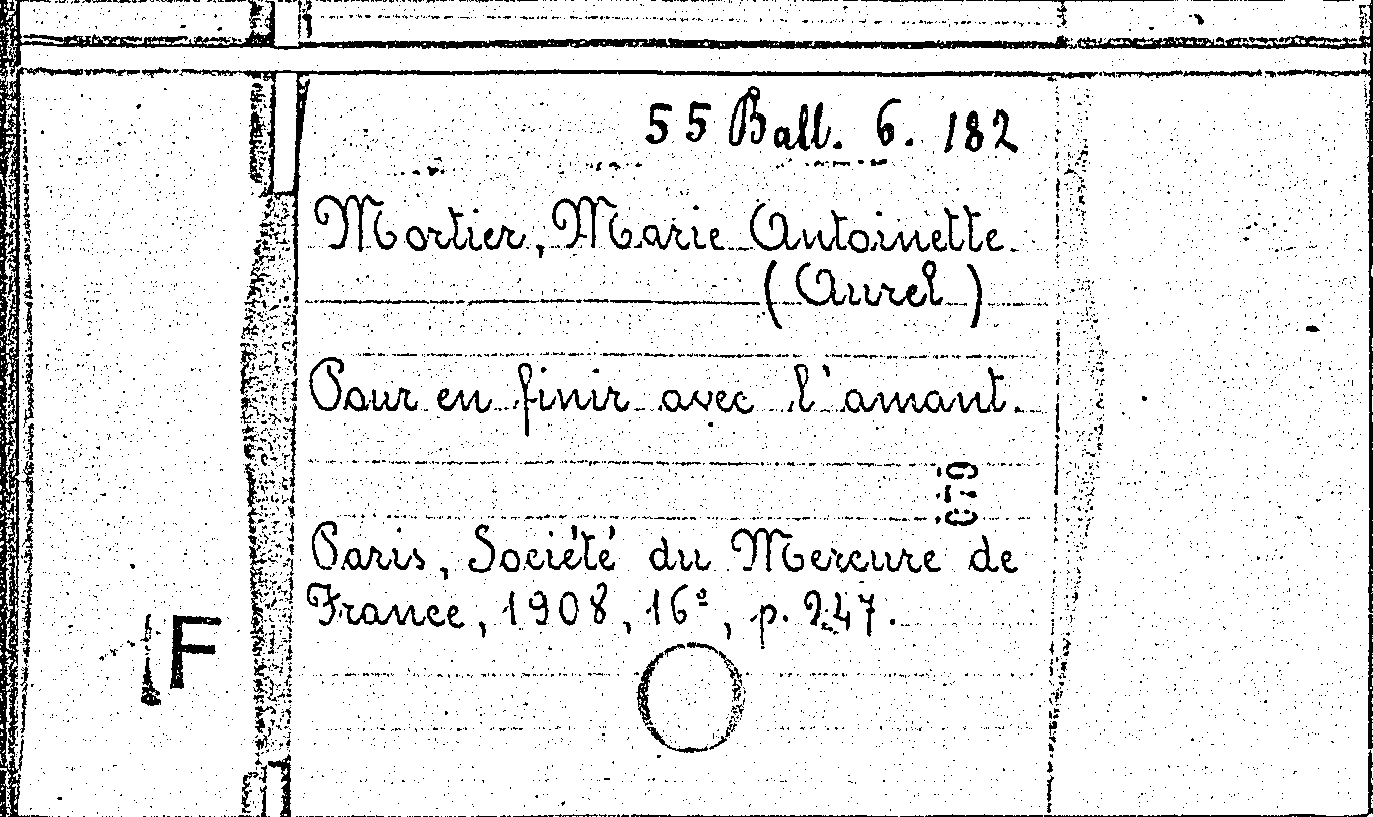 55 Ball. 6. 182
Mortier, Marie Antoinette
(Aurel)
Pour en finir avec l'amant.
Paris, Société du Mercure de
France, 1908, 16º, p. 247.
F